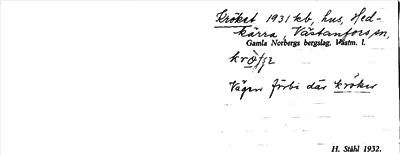 Kröket 1931 kb, hus, Hed-
kärra, Västanfors sn,
Gamla Norbergs bergslag, Västm. l.
Vägen förbi där kröker
H. Ståhl 1932.